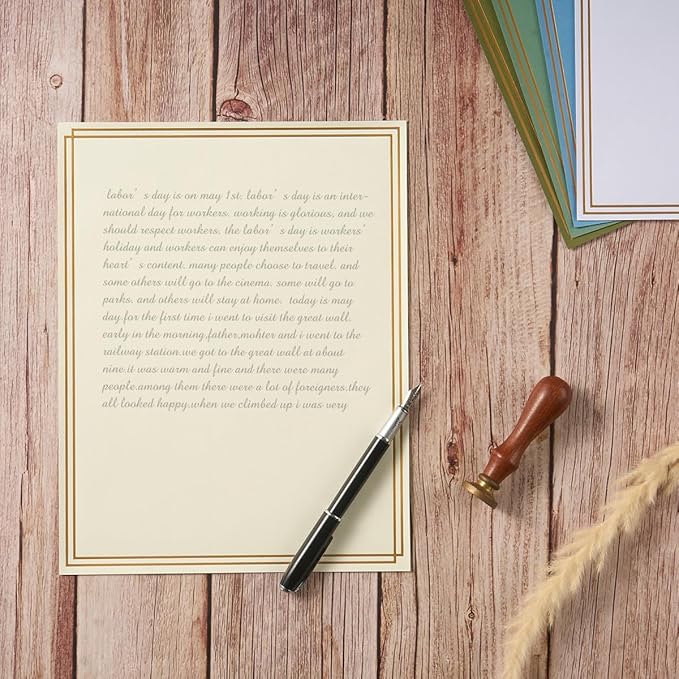 labor’s day is on may 1st. labor’s day is an inter-
national day for workers. working is glorious, and we
should respect workers. the labor’s day is workers’
holiday and workers can enjoy themselves to their
heart’s content. many people choose to travel. and
some others will go to the cinema. some will go to
parks. and others will stay at home. today is may
day.for the first time i went to visit the great wall.
early in the morning,father,mohter and i went to the
railway station.we got to the great wall at about
nine.it was warm and fine and there were many
people.among them there were a lot of foreigners.they
all looked happy.when we climbed up i was very